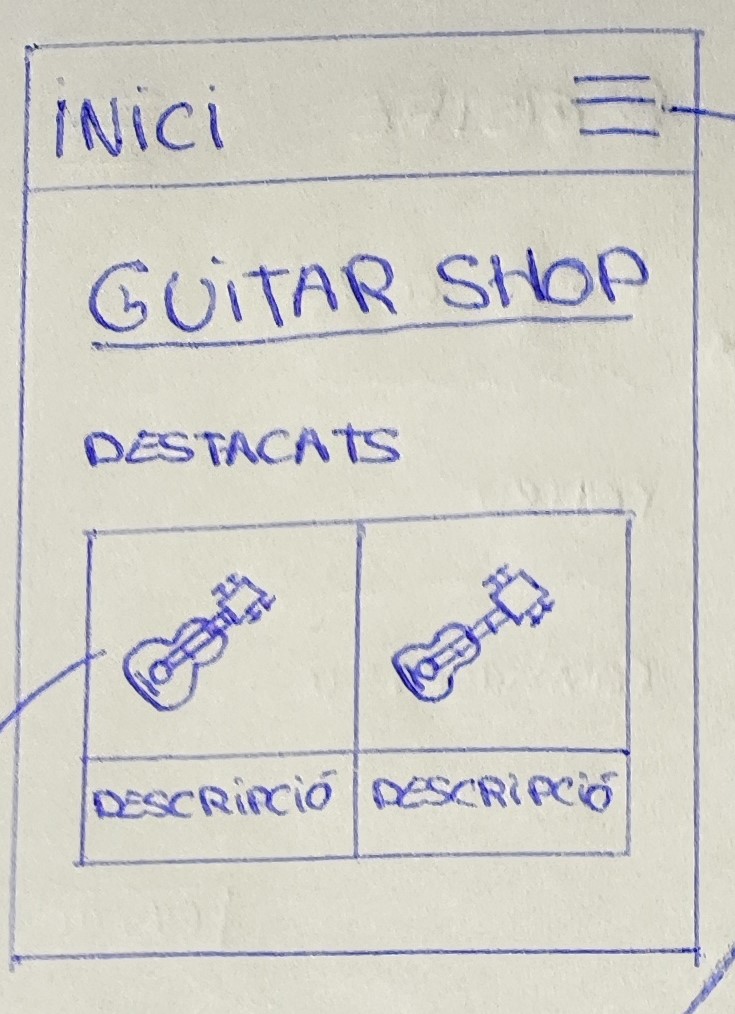 INICI
GUITAR SHOP
DESTACATS
DESCRIPCIÓ DESCRIPCIÓ